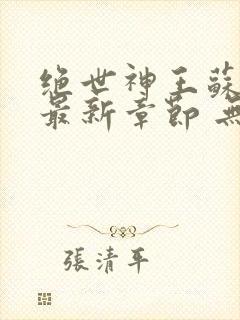 絕世神王蘇
最新章節 無
張清平